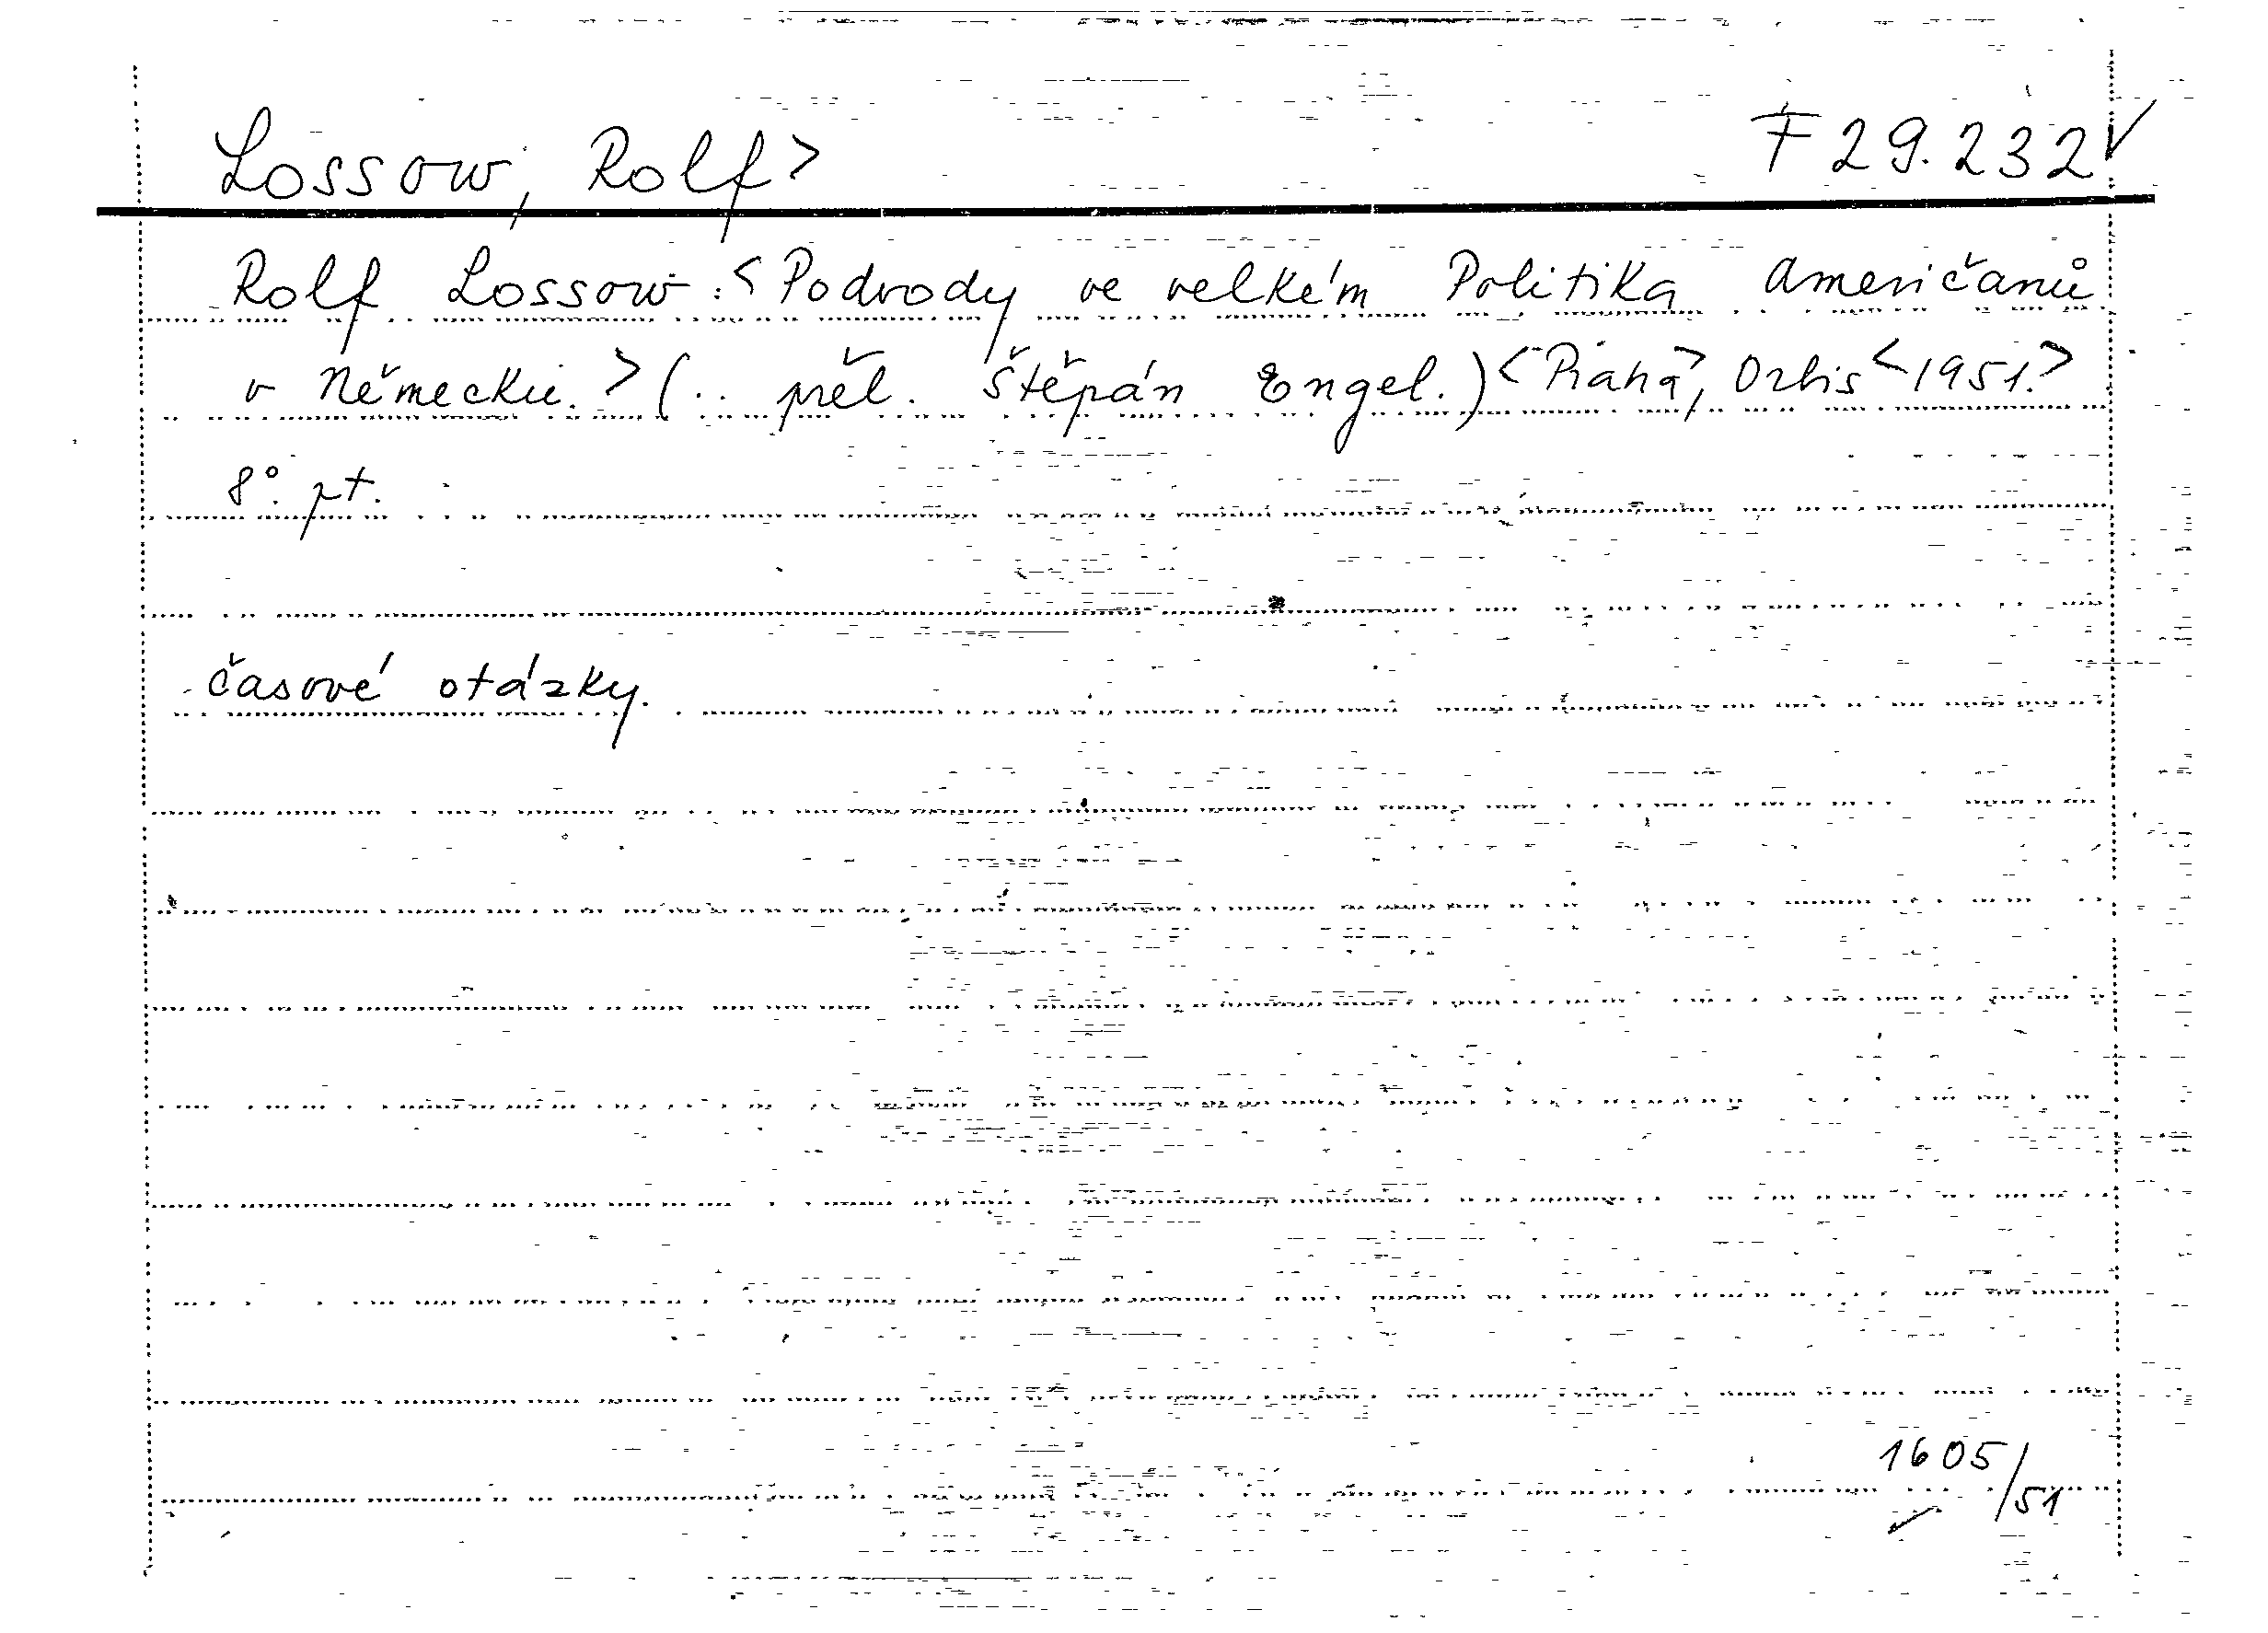 Lossow, Rolf> F 29.232 √
Rolf Lossow: <Podvody ve velkém Politika američanů
v Německu.> (.. přel. Štěpán Engel.) <Praha>, Orbis <1951.>
8°. pt.
časové otázky.
1605/51